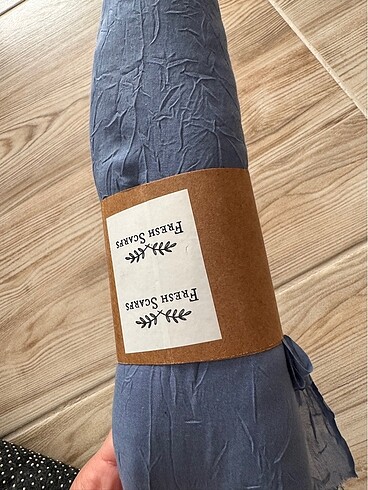 FRESH SCARFS
FRESH SCARFS